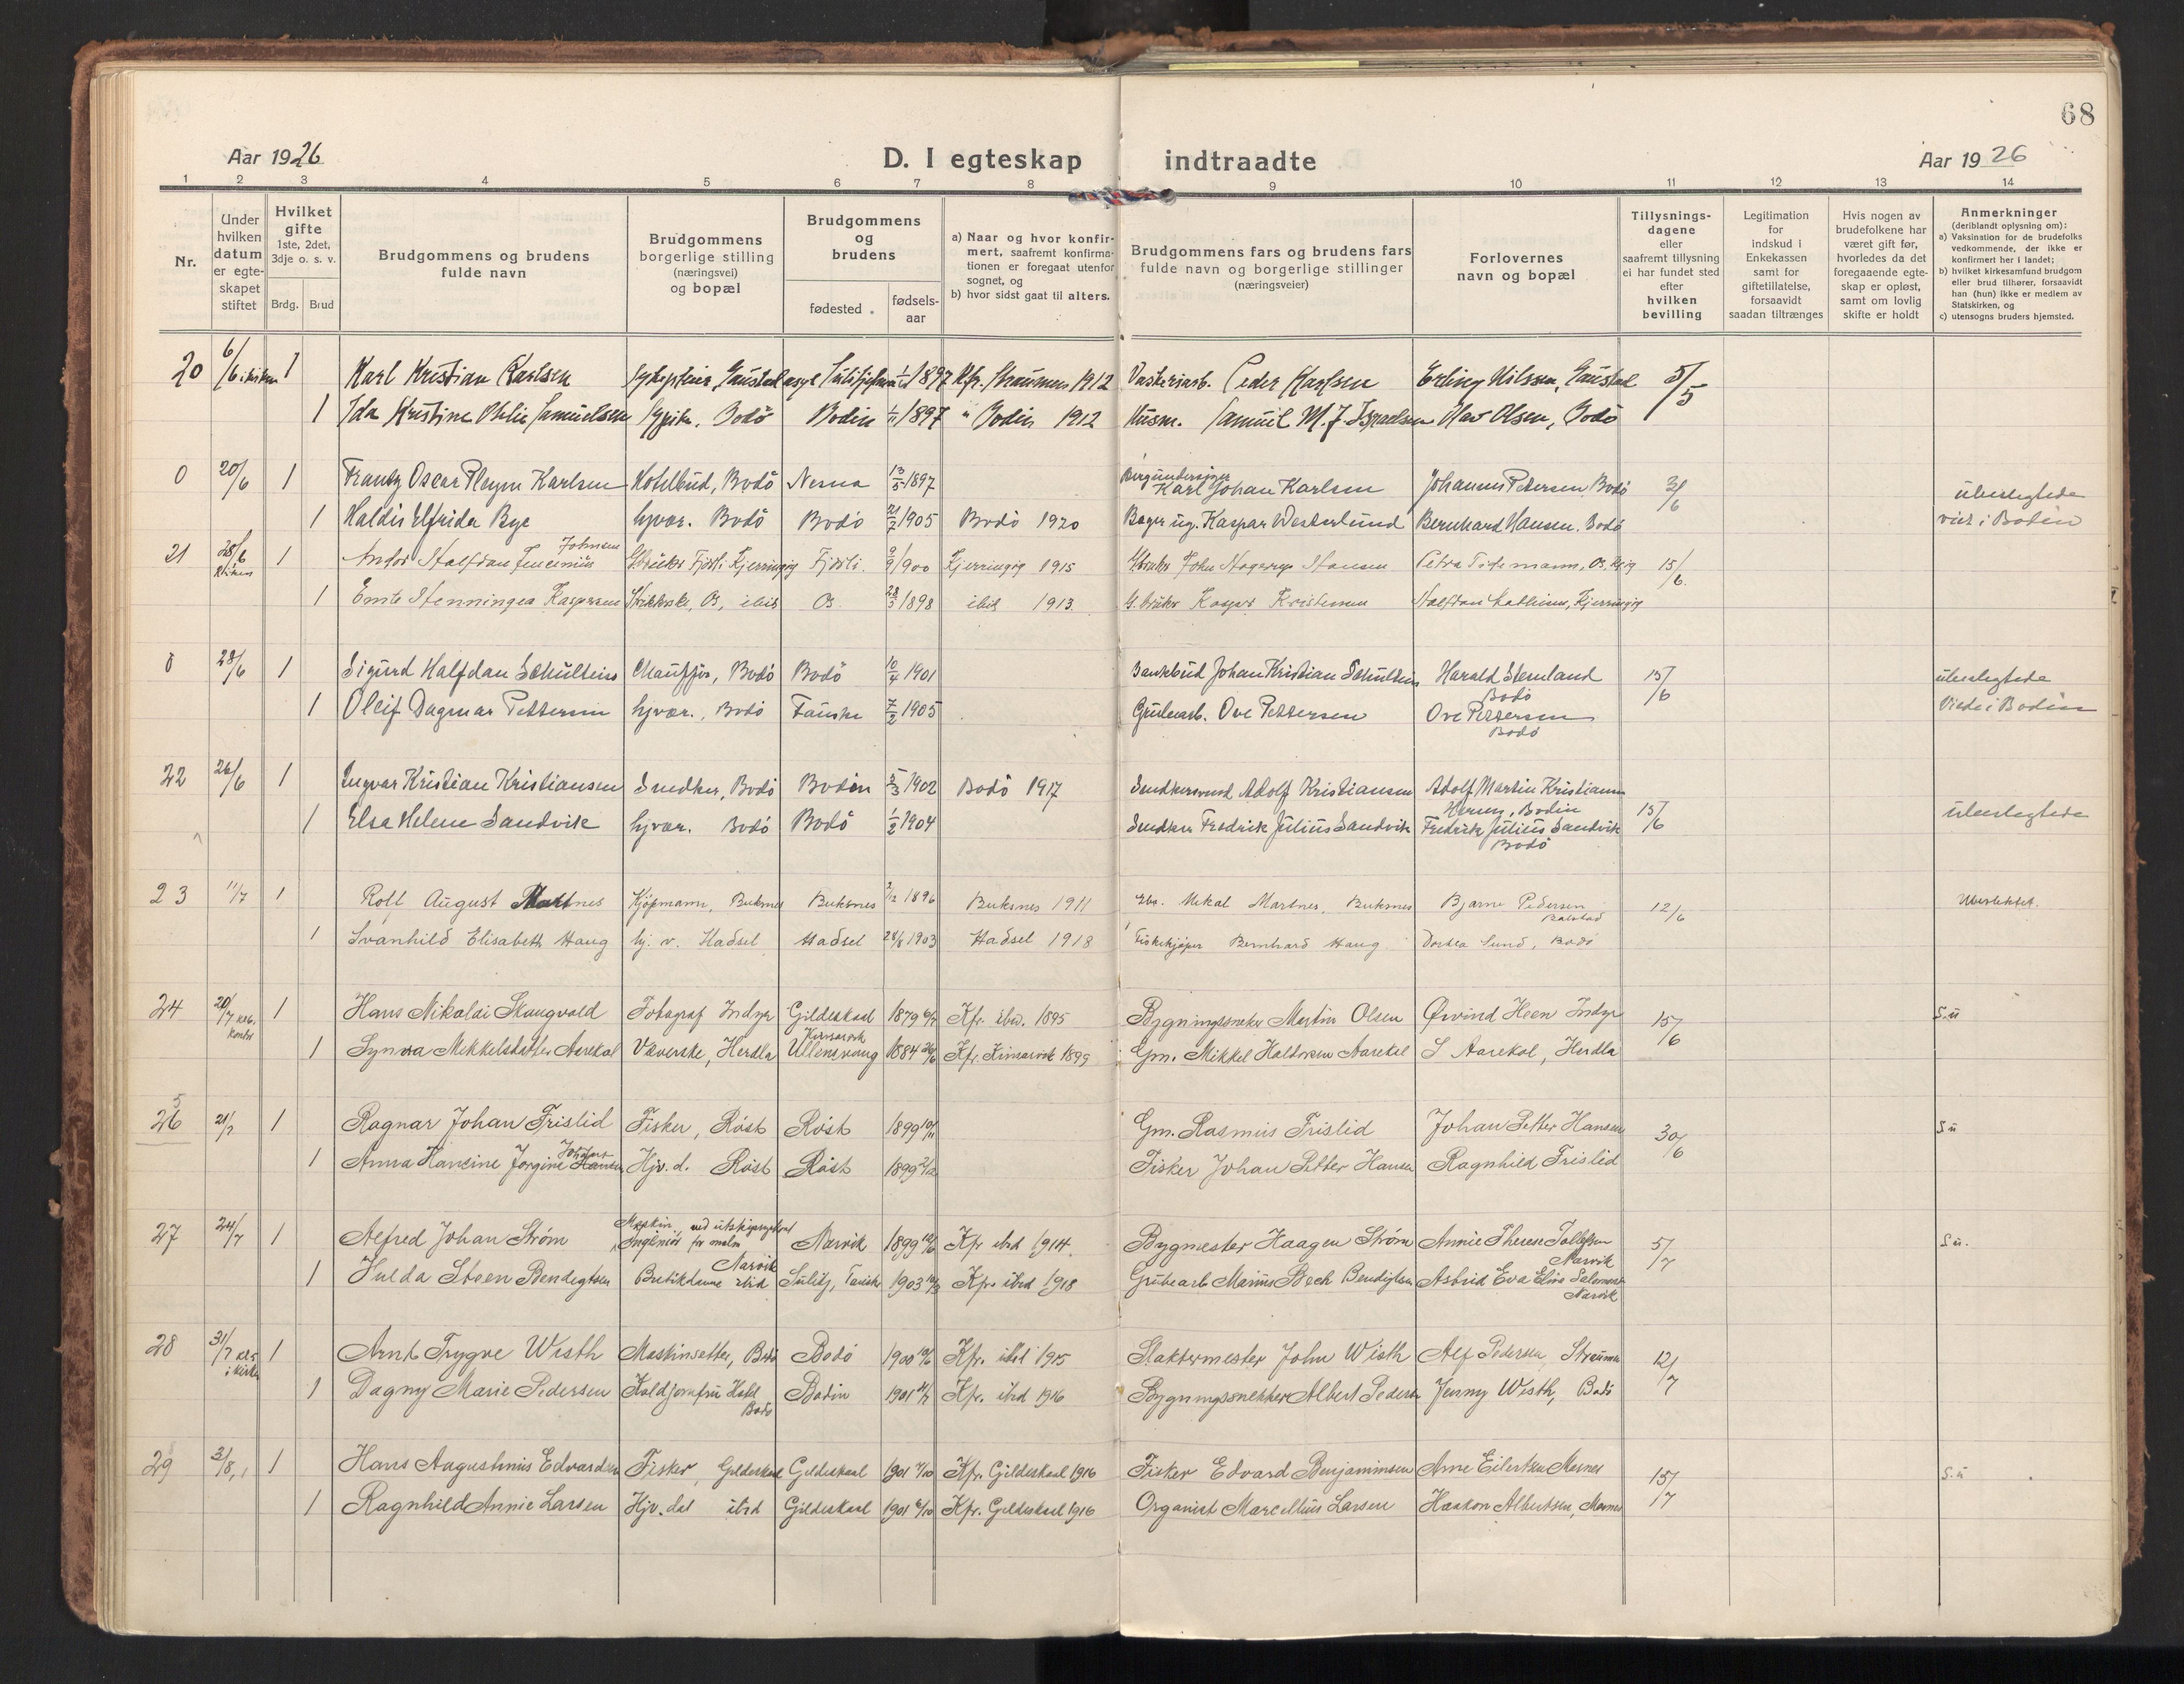 68
Aar 1926
D. I egteskap indtraadte
Aar 1926
1 2 3 4 5 6 7 8 9 10 11 12 13 14
Nr.
Under hvilken datum er egteskapet stiftet
Hvilket gifte 1ste, 2det, 3dje o. s. v.
Brdg. Brud
Brudgommens og brudens fulde navn
Brudgommens borgerlige stilling (næringsvei) og bopæl
Brudgommens og brudens
fødested
fødselsaar
a) Naar og hvor konfirmert, saafremt konfirmationen er foregaat utenfor sognet, og
b) hvor sidst gaat til alters.
Brudgommens fars og brudens fars fulde navn og borgerlige stillinger (næringsveier)
Forlovernes navn og bopæl
Tillysningsdagene eller saafremt tillysning ei har fundet sted efter hvilken bevilling
Legitimation for indskud i Enkekassen samt for giftetillatelse, forsaavidt saadan tiltrænges
Hvis nogen av brudefolkene har været gift før, hvorledes da det foregaaende egteskap er opløst, samt om lovlig skifte er holdt
Anmerkninger (deriblandt oplysning om):
a) Vaksination for de brudefolks vedkommende, der ikke er konfirmert her i landet;
b) hvilket kirkesamfund brudgom eller brud tilhører, forsaavidt han (hun) ikke er medlem av Statskirken, og
c) utensogns bruders hjemsted.
20 6/6 1 Karl Kristian Karlsen 1897 Kfr. 1912 Peder Karlsen Erling Nilssen, Gaustad 5/5
1 Ida Kristine Samuelsen Bodö Bodin 1/11 1897 " Bodin 1912 Husm. Samuel M. J. Israelsen Olav Olsen, Bodö
0 20/6 1 Frantz Oscar Pleym Karlsen Hotelbud, Bodö Nesna 13/5 1897 Karl Johan Karlsen Johannes Petersen Bodö
1 Haldis Elfrida Bye hjvær. Bodö Bodö 1905 Bodö 1920 Kaspar Westerlund Bernhard Hansen. Bodö
ubeslegtede
viet i Bodin
21 28/6 1 Johnsen
Halfdan Kjerringöy 9/9 1900 Kjerringöy 1915 John Hansen Petra Tidemann, Os, Kjg 15/6
1 Henningea Kaspersen Os, ibid Os 1898 ibid 1913 Kaspar Kristensen Halfdan Kjerringöy
0 28/6 1 Sigurd Halfdan Schulteiss Chauffør, Bodö Bodö 10/4 1901 Bankbud Johan Kristian Schulteiss Harald Stemland
Bodö 15/6 ubeslegtede
1 Oleif Dagmar Pettersen hjvær., Bodö Fauske 7/2 1905 Grubearb. Ove Pettersen Ove Pettersen
Bodö Viede i Bodin
22 26/6 1 Ingvar Kristian Kristiansen Snedker, Bodö Bodin 5/3 1902 Bodö 1917 Adolf Kristiansen Adolf Martin Kristiansen
Bodin 15/6
1 Elsa Helene Sandvik hjvær. Bodö Bodö 1/2 1904 Snedker Fredrik Julius Sandvik Fredrik Julius Sandvik
Bodö ubeslegtede
23 11/7 1 Rolf August Martnes Kjøpmann, Buksnes Buksnes 1896 Buksnes 1911 Mikal Martnes, Buksnes Bjarne Pedersen
Balstad 12/6 Ubeslektet.
1 Svanhild Elisabeth Haug hj. v. Hadsel Hadsel 1903 Hadsel 1918 Fiskekjøper Bernhard Haug Dortea Lund, Bodö
24 20/7 1 Hans Nikolai Skaugvold Fotograf Indyr Gildeskaal 1879 Kfr. ibid. 1895 Bygningssneker Martin Olsen Øivind Heen Indyr 15/6 S.u
1 Synva Mekkelsdatter Aarekol Væverske, Herdla Kinsarvik
Ullensvang 1884 Kfr. Kinsarvik 1899 Gm. Mikkel Haldorsen Aarekol S Aarekol, Herdla
5
26 21/7 1 Ragnar Johan Frislid Fisker, Röst Röst 1899 Gm. Rasmus Frislid Johan Petter Hansen 30/6 S u
1 Anna Hansine Jorgine Hansen Hjv. d. Röst Röst 1899 Fisker Johan Petter Hansen Ragnhild Frislid
27 24/7 1 Alfred Johan Strøm Maskin
Ingeniör for malm
Narvik Narvik 1899 Kfr ibid 1914. Bygmester Haagen Strøm Annie Therese Tollefsen
Narvik 5/7 S u.
1 Hulda Steen Bendigtsen Butikdame ibid Sulitj, Fauske 1903 Kfr. ibid 1918 Grubearb Marius Bech Bendigtsen Astrid Eva Elise Salomonsen
Narvik
28 31/7 kl 5 i kirken 1 Arnt Trygve Wisth Maskinsetter, Bodö Bodö 1900 Kfr. ibid 1915 Slaktermester John Wisth Alf Pedersen, Straumen 12/7
1 Dagny Marie Pedersen Koldjomfru Hotel
Bodö Bodin 1901 Kfr. ibid 1916 Bygningssnekker Albert Pedersen Jenny Wisth, Bodö
29 3/8 1 Hans Augustinus Edvardsen Fisker, Gildeskaal Gildeskaal 1901 Kfr. Gildeskaal 1916 Fisker Edvard Benjaminsen Arne Eilertsen Mornes 15/7 S.u
1 Ragnhild Annie Larsen Hjv. dat ibid Gildeskaal 1901 Kfr. Gildeskaal 1916 Organist Marcellius Larsen Haakon Albertsen, Mornes